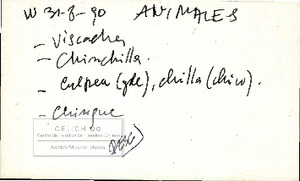 W 31-8-90 ANIMALES
- Viscacha
- Chinchilla.
- culpea (gde), chilla (chico).
- Chingue
CELICH UC